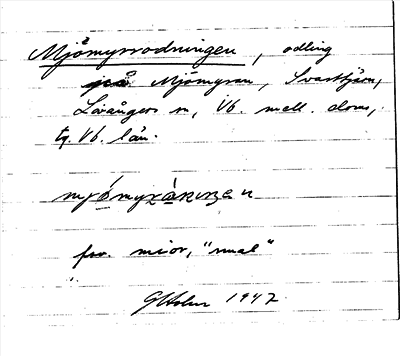 Mjömyrrodningen, odling
på Mjömyran, Svarttjärn,
Lövångers sn, Vb. mell. doms,
tg. Vb. län.
mjömyrànɩŋen
fsv. miör, "smal"
GHolm 1947